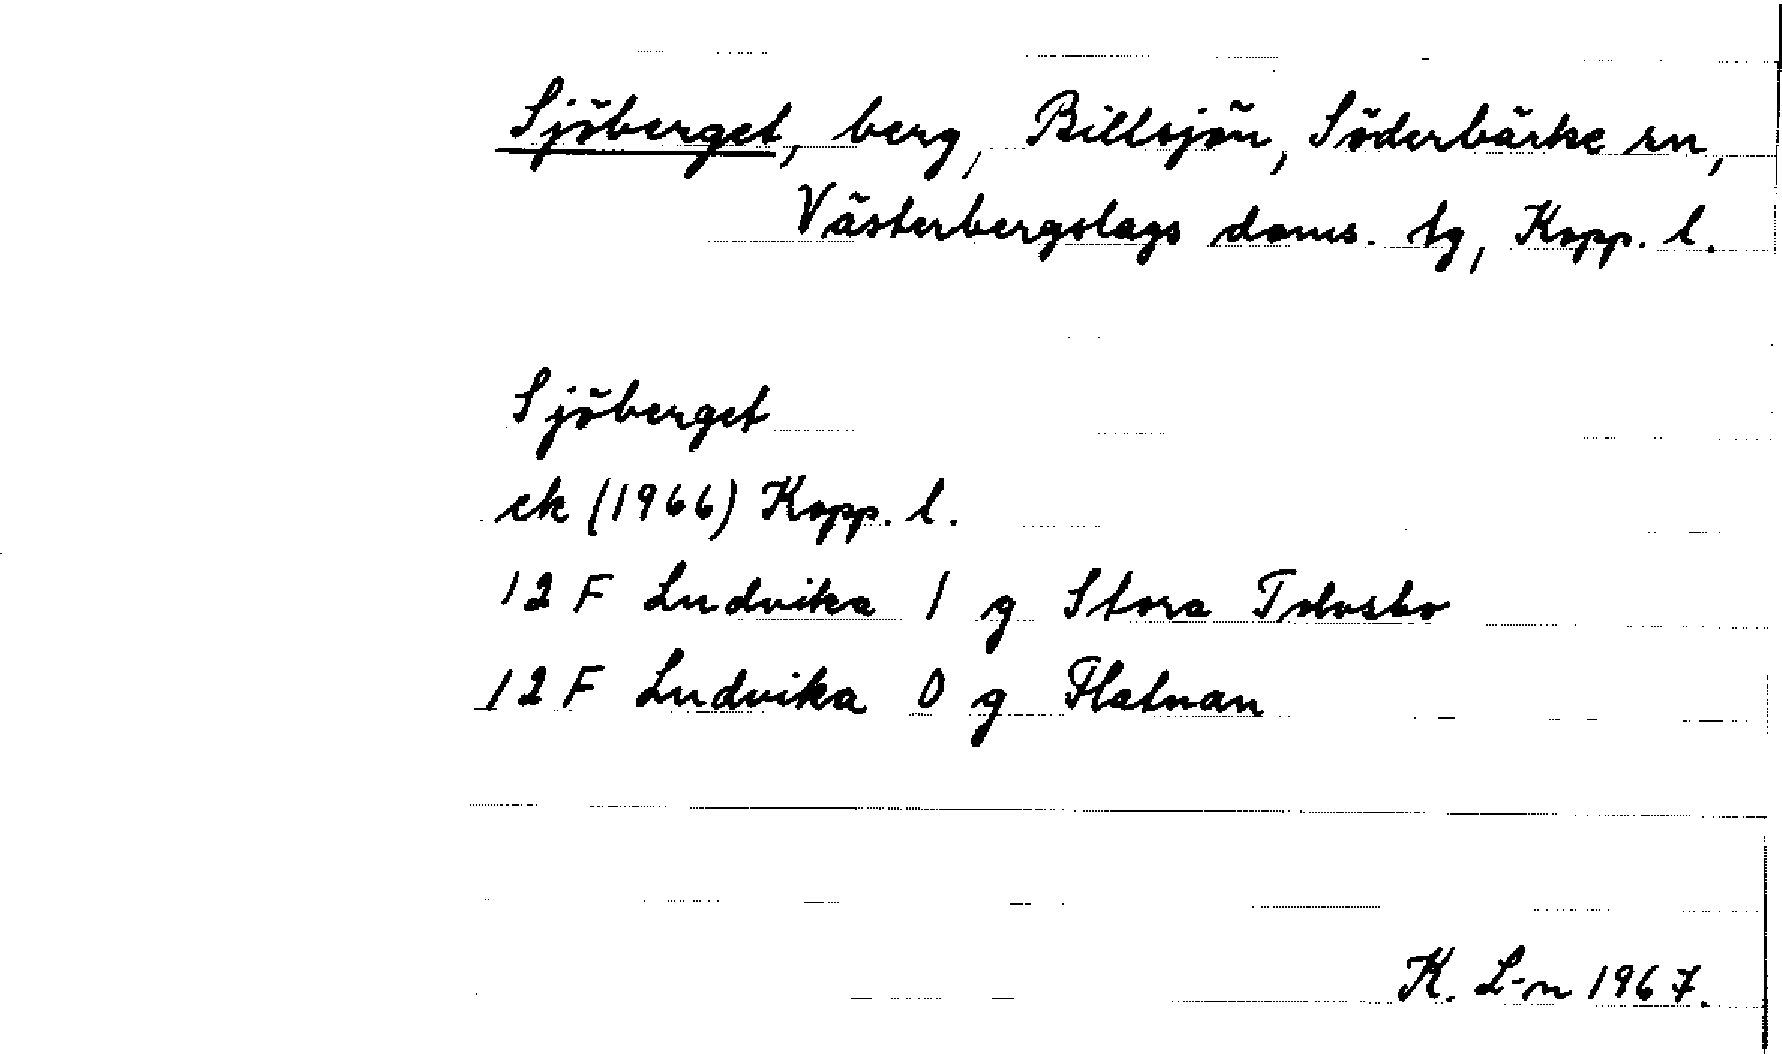 Sjöberget, berg, Billsjön, Söderbärke sn,
Västerbergslags doms. tg, Kopp. l.
Sjöberget
ek (1966) Kopp. l.
12 F Ludvika 1 g Stora Tolvsbo
12 F Ludvika 0 g Flatnan
K. L-n 1967.